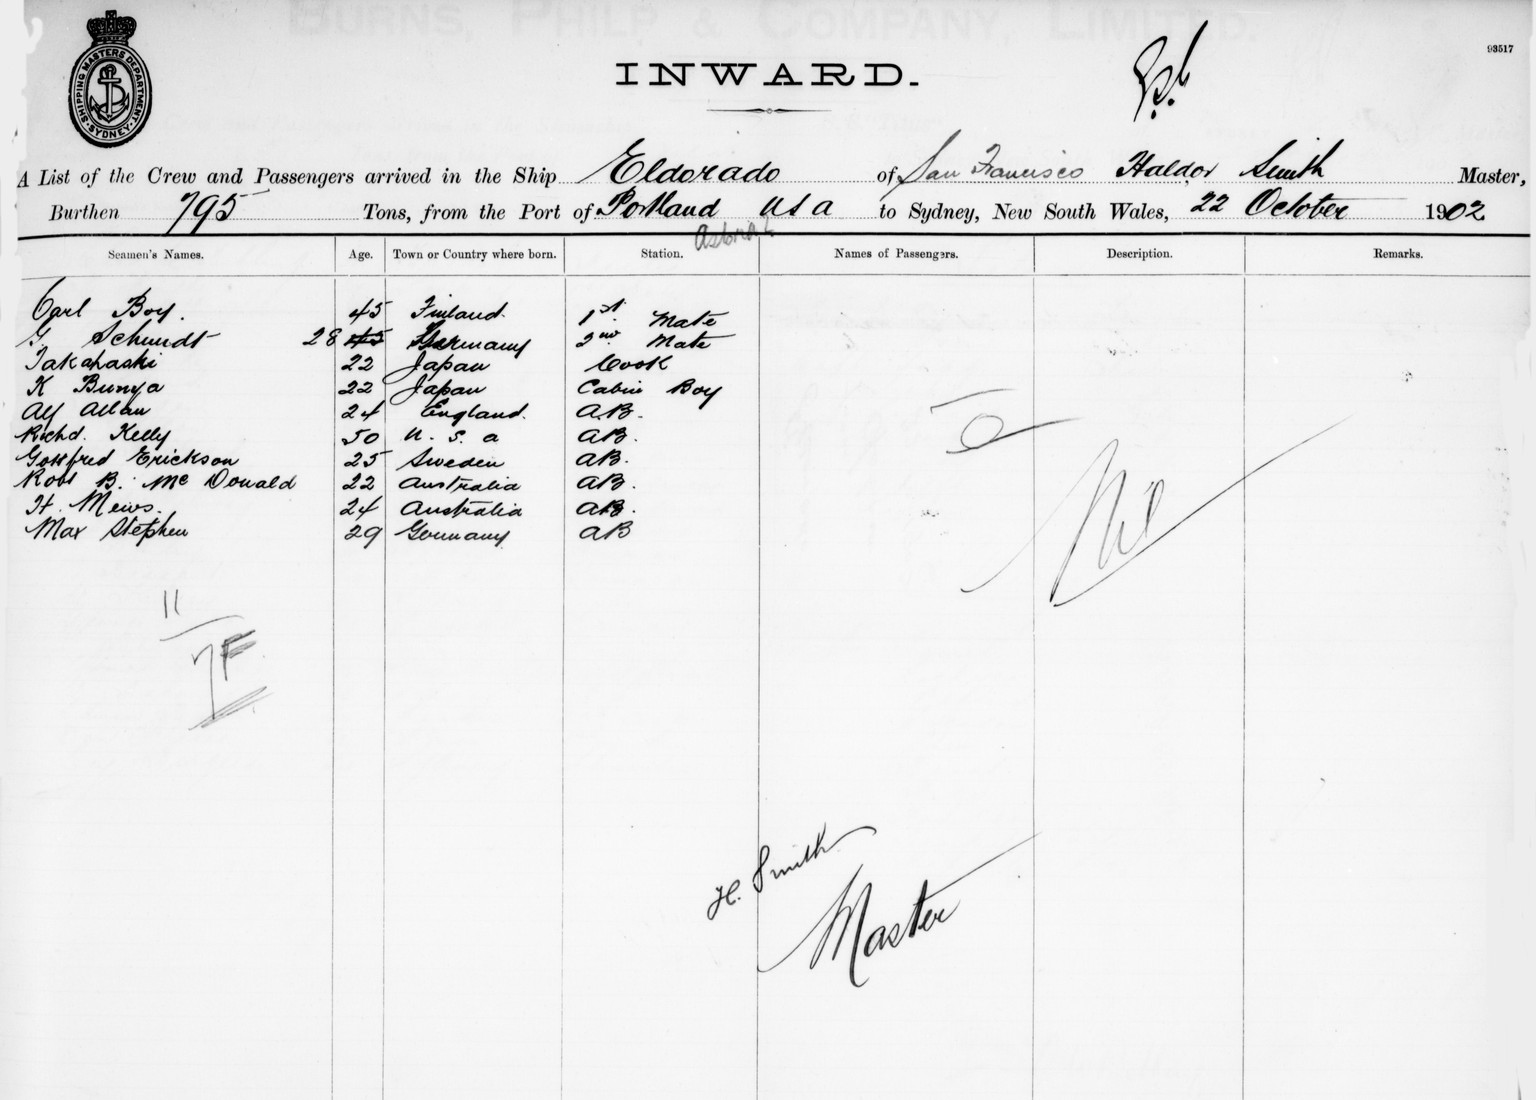 BURNS, PHILP & COMPANY, LIMITED.
SHIPPING MASTERS DEPARTMENT. SYDNEY
93517
INWARD.
A List of the Crew and Passengers arrived in the Ship Eldorado of San Francisco Haldor Smith Master,
Burthen 795 Tons, from the Port of Portland USA to Sydney, New South Wales, 22 October 1902
Astoria
Seamen's Names. Age. Town or Country where born. Station. Names of Passengers. Description. Remarks.
Carl Boy. 45 Finland. 1st Mate
G Schmidt 28 45 Germany 2nd Mate
Takahashi 22 Japan Cook
K Bunya 22 Japan Cabin Boy
Alf Allan 24 England. A.B.
Richd. Kelly 50 U. S. a AB.
Gottfred Erickson 25 Sweden AB.
Robt B. Mc Donald 22 Australia AB.
H. Mews. 24 Australia AB.
Max Stephen 29 Germany AB
Nil
11
7F
H. Smith
Master